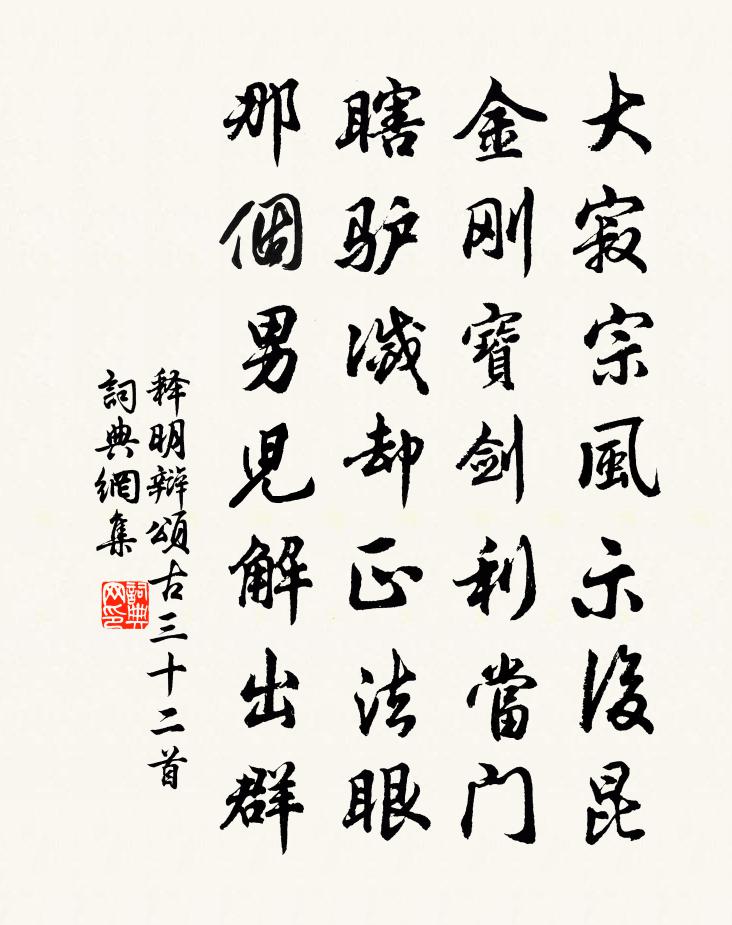 大寂宗風示後昆
金刚寶劍利當门
瞎驴滅却正法眼
那個男児解出群
释明辯頌古三十二首
詞典網集
詞典网印